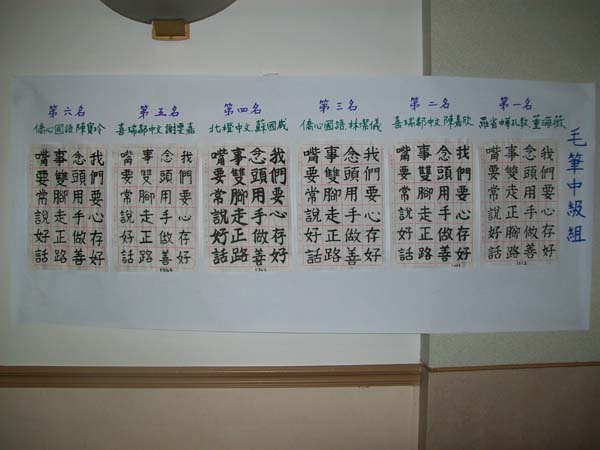 毛筆中級組
第一名
羅省中華孔教
我們要心存好
念頭用手做善
事雙腳走正路
嘴要常說好話
第二名
喜瑞都中文 陳嘉欣
我們要心存好
念頭用手做善
事雙腳走正路
嘴要常說好話
第三名
僑心國語 林潔儀
我們要心存好
念頭用手做善
事雙腳走正路
嘴要常說好話
第四名
北橙中文 蘇國威
我們要心存好
念頭用手做善
事雙腳走正路
嘴要常說好話
第五名
喜瑞都中文 謝雯嘉
我們要心存好
念頭用手做善
事雙腳走正路
嘴要常說好話
第六名
僑心國語 陳寶玲
我們要心存好
念頭用手做善
事雙腳走正路
嘴要常說好話